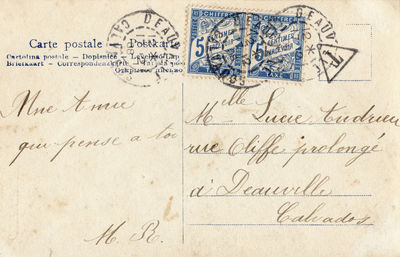 DEAUVILLE
Carte postale — Postkarte
Cartolina postale – Dopisnice – Levelező-Lap
Briefkaart – Correspondenzkarte
CHIFFRE
5 CENTIMES
5 CENTIMES
À PERCEVOIR
TAXE
T
Une Amie
qui pense a toi
M. R.
Mlle Lucie Andrieu
rue Cliffe prolongé
à Deauville
Calvados